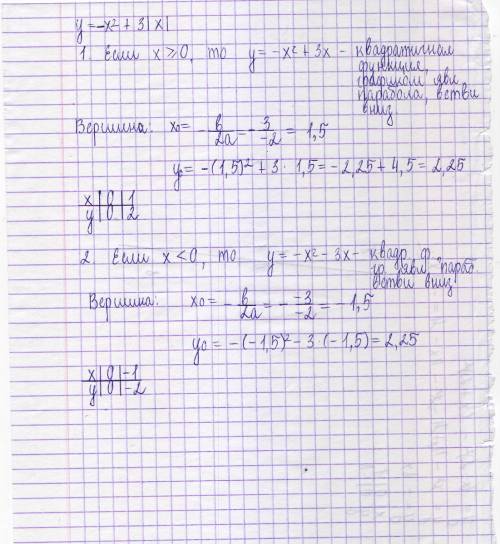 y=-x²+3|x|
1. Если x⩾0, то y= -x²+3x - квадратичная
функция,
графиком явл.
парабола, ветви
вниз.
Вершина: x₀= -b/2a = -3/-2 = 1,5
y₀= -(1,5)²+3·1,5=-2,25+4,5=2,25
x|0|1
y|0|2
2. Если x<0, то y= -x²-3x- квадр. ф.
гр. явл. параб.
ветви вниз
Вершина: x₀= -b/2a = - -3/-2 = -1,5
y₀ = -(-1,5)²-3·(-1,5)=2,25
x|0|-1
y|0|-2